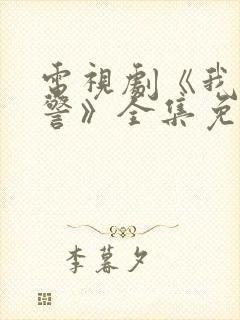 電視劇《我
警》全集免
李暮夕